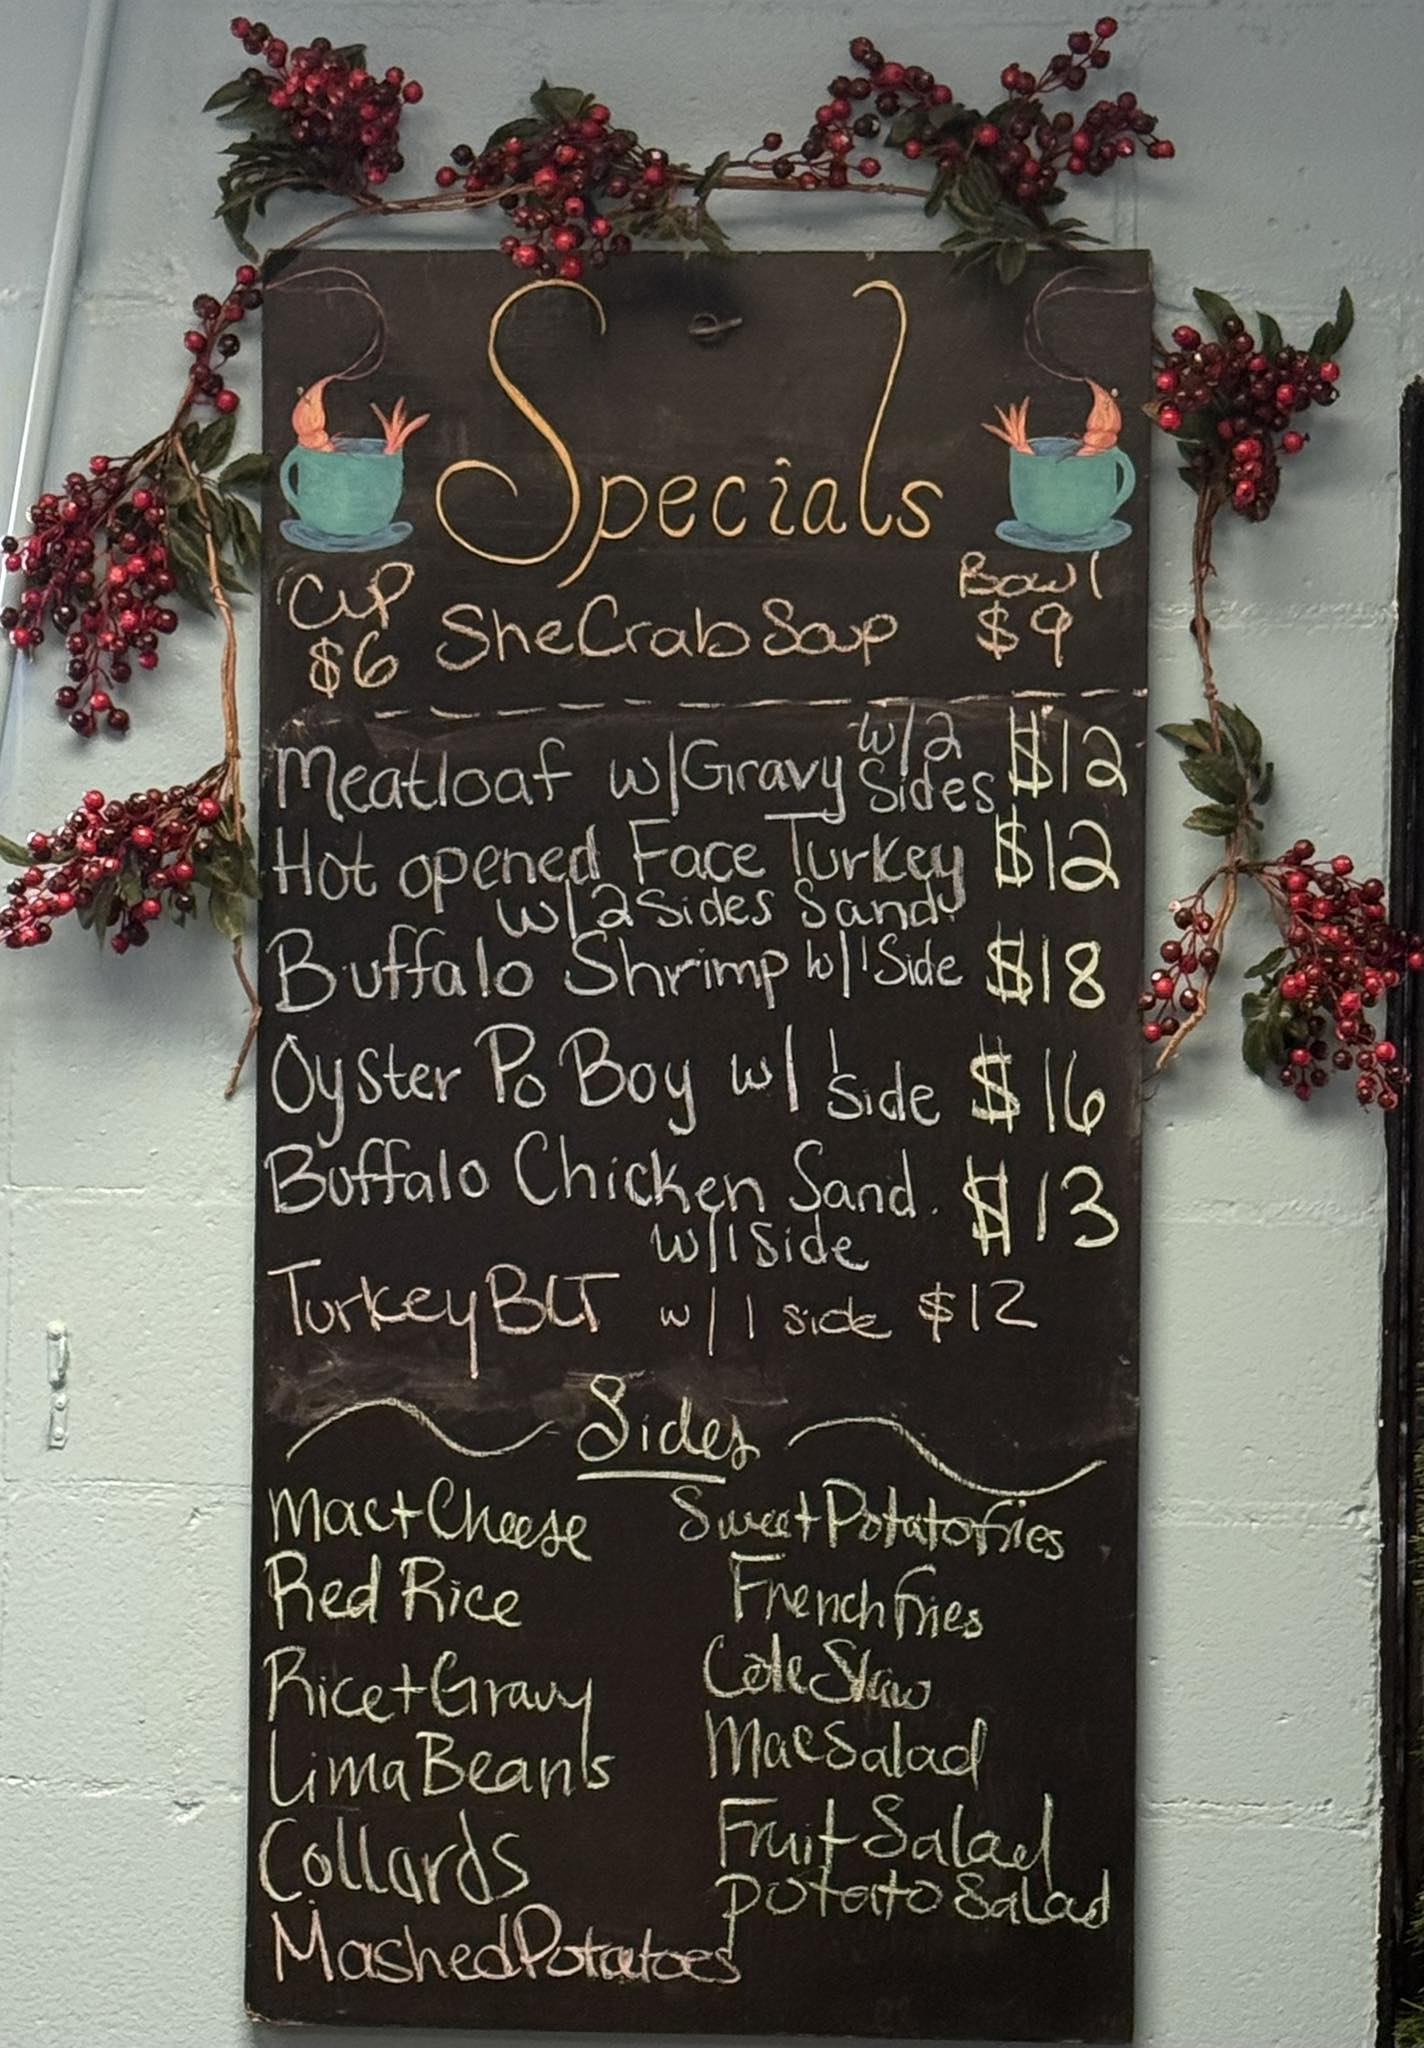 Specials
Cup Bowl
$6 SheCrab Soup $9
Meatloaf w/Gravy w/2 Sides $12
Hot opened Face Turkey $12
w/2 Sides Sand.
Buffalo Shrimp w/1 Side $18
Oyster Po Boy w/ 1 Side $16
Buffalo Chicken Sand. $13
w/1 Side
Turkey BLT w/ 1 side $12
Sides
Mac+Cheese Sweet Potato fries
Red Rice French fries
Rice+Gravy Cole Slaw
Lima Beans Mac Salad
Collards Fruit Salad
potato Salad
Mashed Potatoes